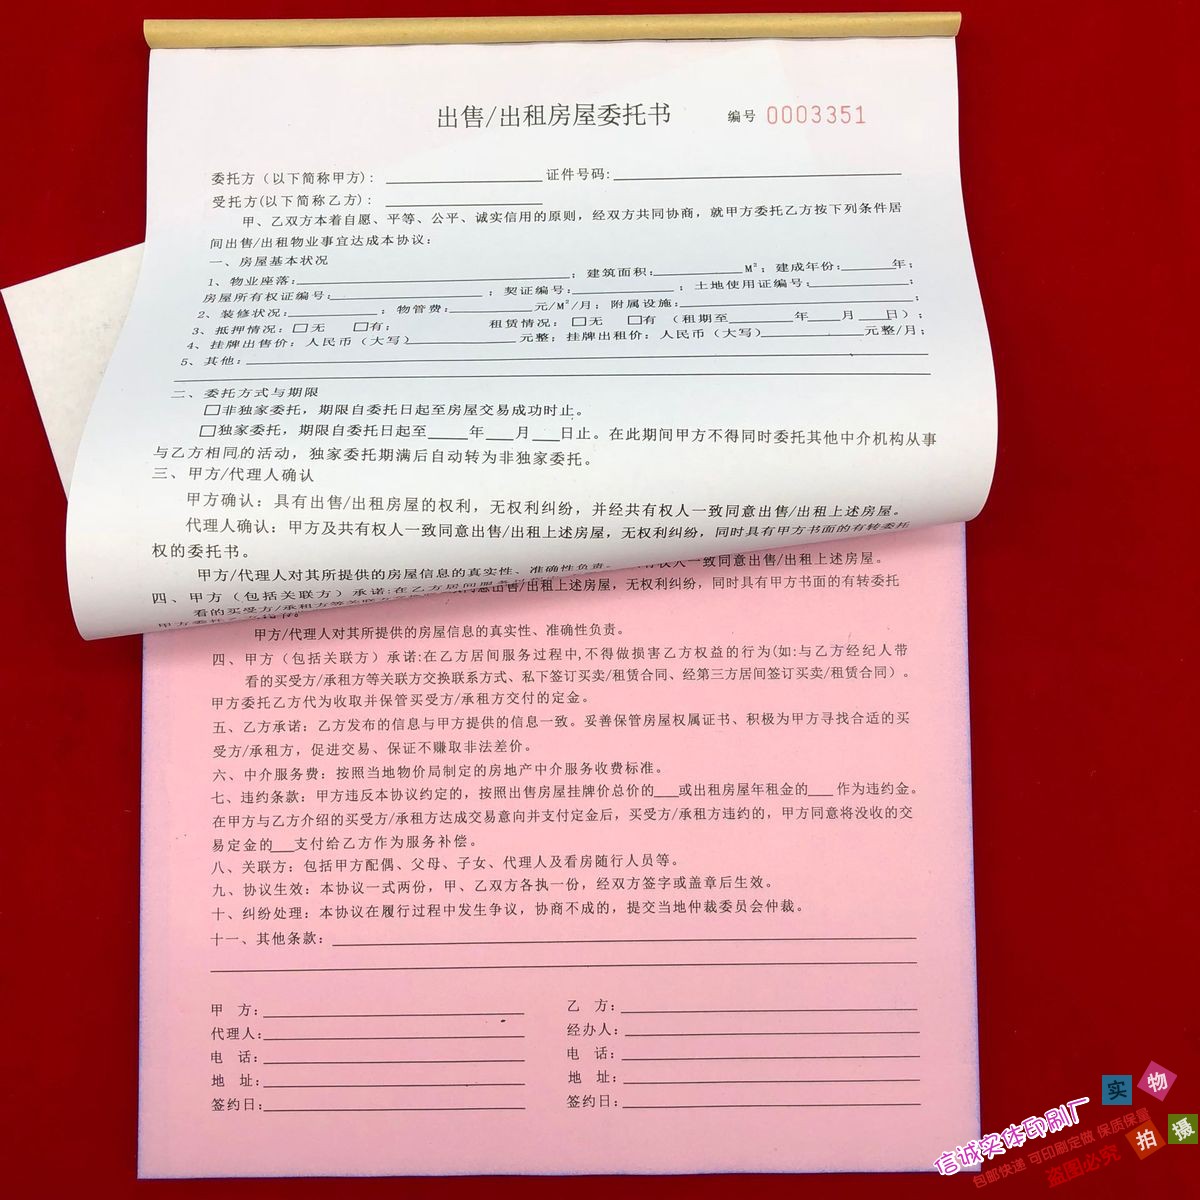 出售/出租房屋委托书 编号 0003351
委托方（以下简称甲方）：________ 证件号码：________
受托方(以下简称乙方)：________
甲、乙双方本着自愿、平等、公平、诚实信用的原则，经双方共同协商，就甲方委托乙方按下列条件居
间出售/出租物业事宜达成本协议：
一、房屋基本状况
1、物业座落：________；建筑面积：________M²；建成年份：______年；
房屋所有权证编号：________；契证编号：________；土地使用证编号：________；
2、装修状况：________；物管费：________元/M²/月；附属设施：________；
3、抵押情况：□无 □有； 租赁情况：□无 □有（租期至______年___月___日）；
4、挂牌出售价：人民币（大写）________元整；挂牌出租价：人民币（大写）________元整/月；
5、其他：________
二、委托方式与期限
□非独家委托，期限自委托日起至房屋交易成功时止。
□独家委托，期限自委托日起至____年___月___日止。在此期间甲方不得同时委托其他中介机构从事
与乙方相同的活动，独家委托期满后自动转为非独家委托。
三、甲方/代理人确认
甲方确认：具有出售/出租房屋的权利，无权利纠纷，并经共有权人一致同意出售/出租上述房屋。
代理人确认：甲方及共有权人一致同意出售/出租上述房屋，无权利纠纷，同时具有甲方书面的有转委托
权的委托书。
甲方/代理人对其所提供的房屋信息的真实性、准确性负责。
四、甲方（包括关联方）承诺:在乙方居间服务
看的买受方/承租方等关联方
甲方委托乙方
人一致同意出售/出租上述房屋。
同意出售/出租上述房屋，无权利纠纷，同时具有甲方书面的有转委托
甲方/代理人对其所提供的房屋信息的真实性、准确性负责。
四、甲方（包括关联方）承诺:在乙方居间服务过程中,不得做损害乙方权益的行为(如:与乙方经纪人带
看的买受方/承租方等关联方交换联系方式、私下签订买卖/租赁合同、经第三方居间签订买卖/租赁合同）。
甲方委托乙方代为收取并保管买受方/承租方交付的定金。
五、乙方承诺：乙方发布的信息与甲方提供的信息一致。妥善保管房屋权属证书、积极为甲方寻找合适的买
受方/承租方，促进交易、保证不赚取非法差价。
六、中介服务费：按照当地物价局制定的房地产中介服务收费标准。
七、违约条款：甲方违反本协议约定的，按照出售房屋挂牌价总价的___或出租房屋年租金的___作为违约金。
在甲方与乙方介绍的买受方/承租方达成交易意向并支付定金后，买受方/承租方违约的，甲方同意将没收的交
易定金的___支付给乙方作为服务补偿。
八、关联方：包括甲方配偶、父母、子女、代理人及看房随行人员等。
九、协议生效：本协议一式两份，甲、乙双方各执一份，经双方签字或盖章后生效。
十、纠纷处理：本协议在履行过程中发生争议，协商不成的，提交当地仲裁委员会仲裁。
十一、其他条款：________
甲 方：________ 乙 方：________
代理人：________ 经办人：________
电 话：________ 电 话：________
地 址：________ 地 址：________
签约日：________ 签约日：________
实物
拍摄
信诚实体印刷厂
包邮快递 可印刷定做 保质保量
盗图必究